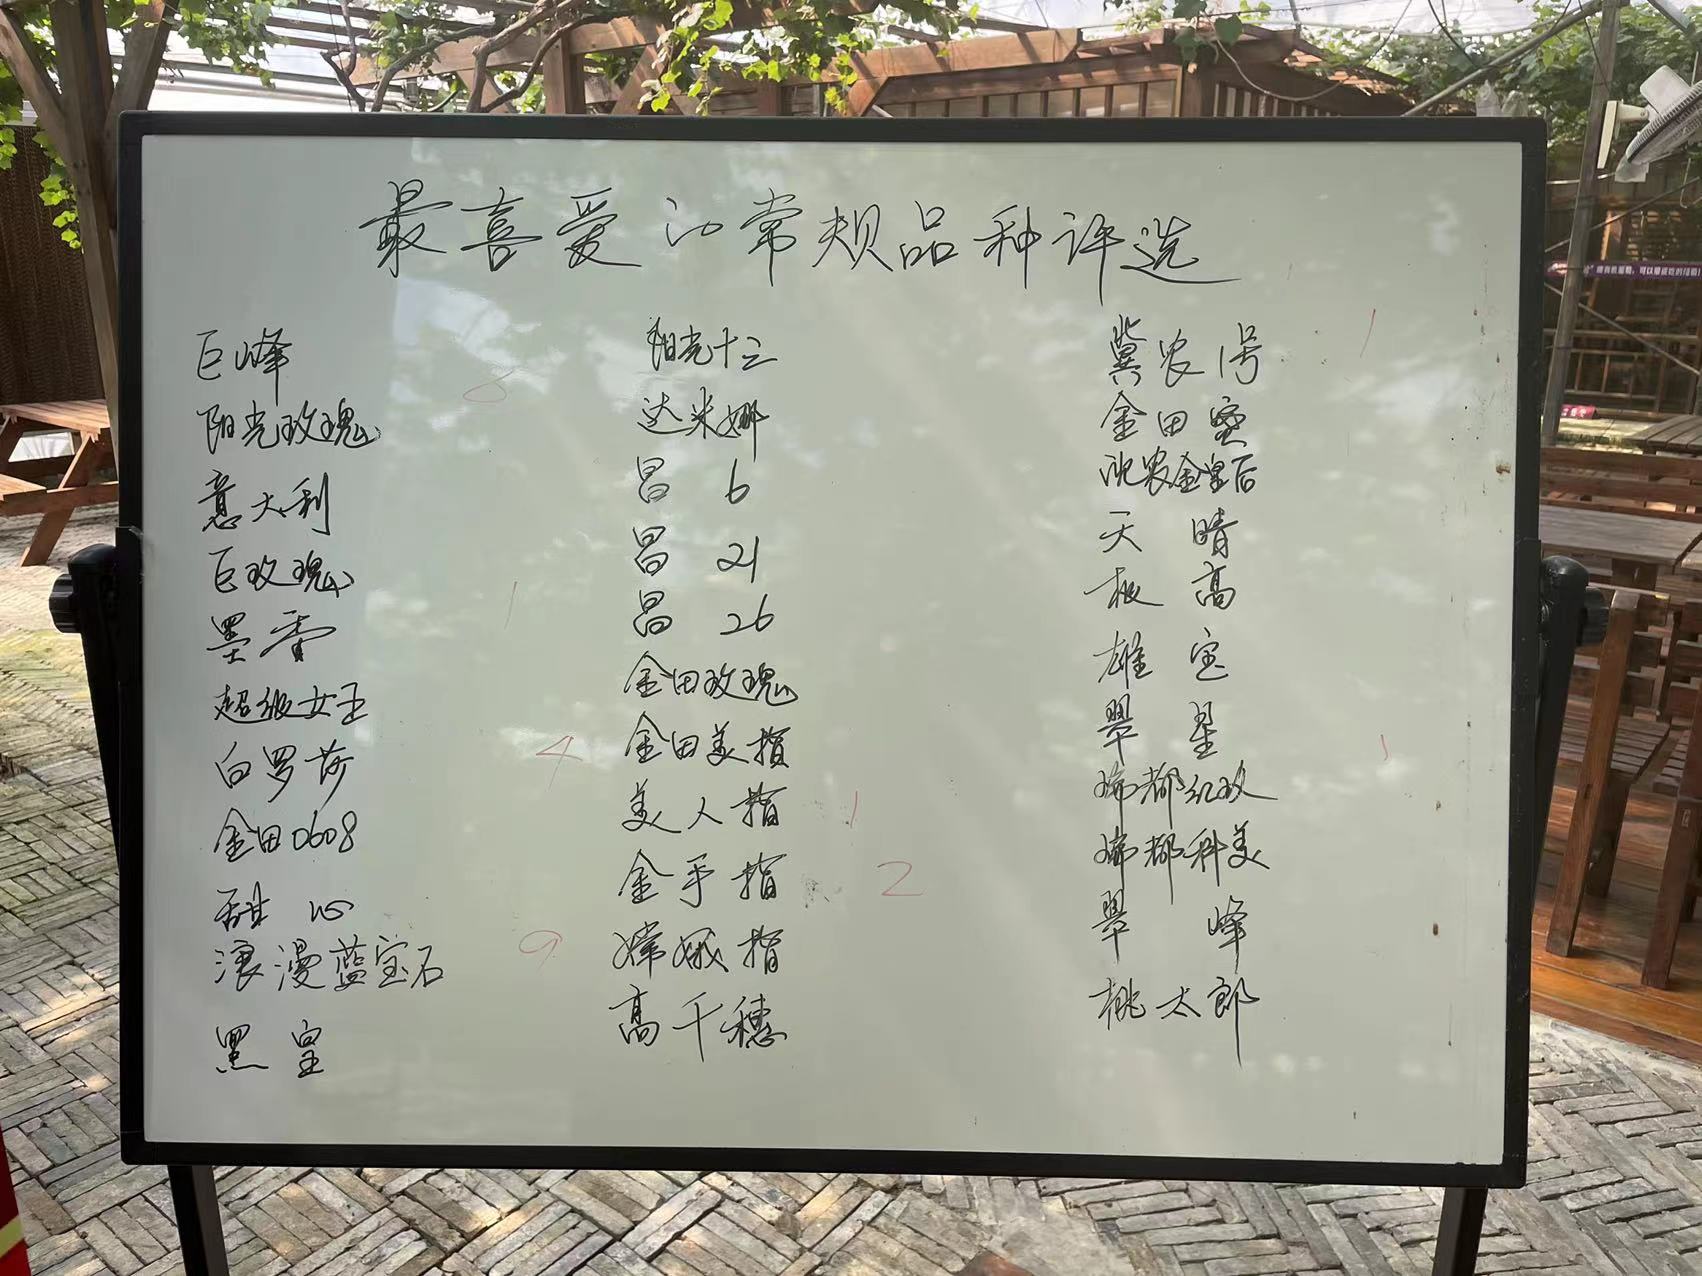 最喜爱的常规品种评选
巨峰
阳光玫瑰 6
意大利
巨玫瑰
墨香 1
超级女王
白罗莎 4
金田0608
甜心
浪漫蓝宝石 9
黑皇
阳光十三
达米娜
昌6
昌21
昌26
金田玫瑰
金田美指
美人指 1
金手指 2
嫦娥指
高千穗
冀农1号 1
金田蜜
沈农金皇后
天晴
极高
雄宝
翠星
瑞都红玫 1
瑞都科美
翠峰
桃太郎